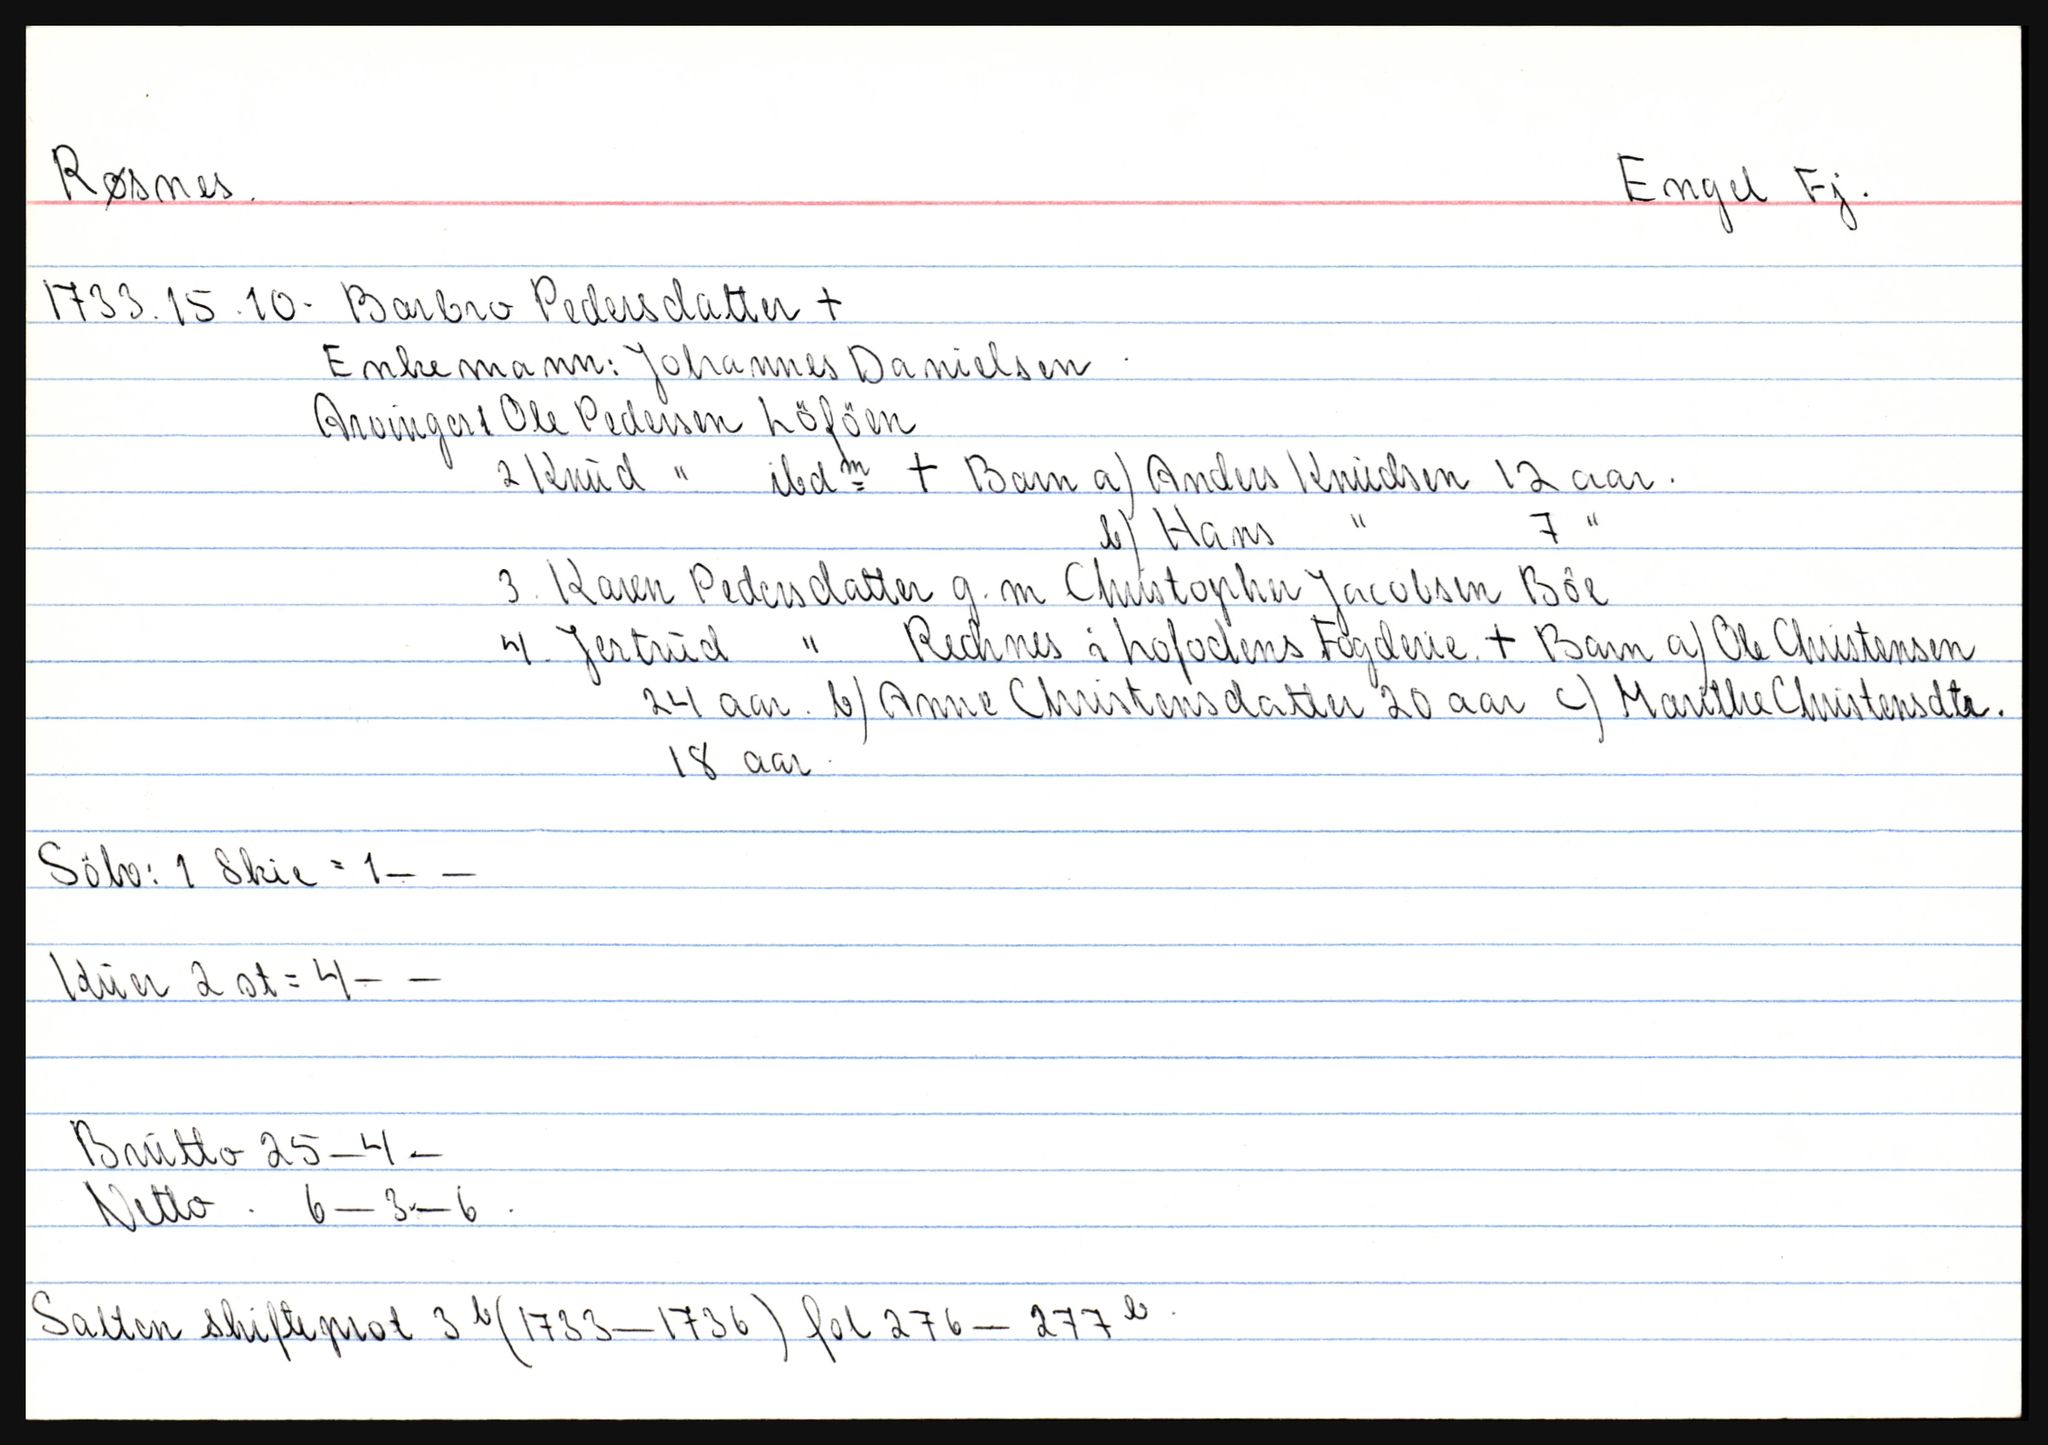 Røsnes. Engel Fj.
1733.15.10. Barbro Pedersdatter +
Enkemann: Johannes Danielsen.
Arvinger 1 Ole Pedersen Löföen
2 Knŭd " ibdm + Barn a) Anders Knŭdsen 12 aar.
b) Hans " 7 "
3. Karen Pedersdatter g.m Christopher Jacobsen Böe
4. Jertrŭd " Rechnes i Lofodens Fogderie. + Barn a) Ole Christensen
24 aar. b) Anne Christensdatter 20 aar c) Marithe Christensdtr.
18 aar.
Sölv: 1 Skie = 1 — —
Kŭer 2 st = 4 — —
Brŭtto 25 — 4 —
Netto. 6 — 3 — 6.
Salten skifteprot 3b (1733—1736) fol 276 — 277b.